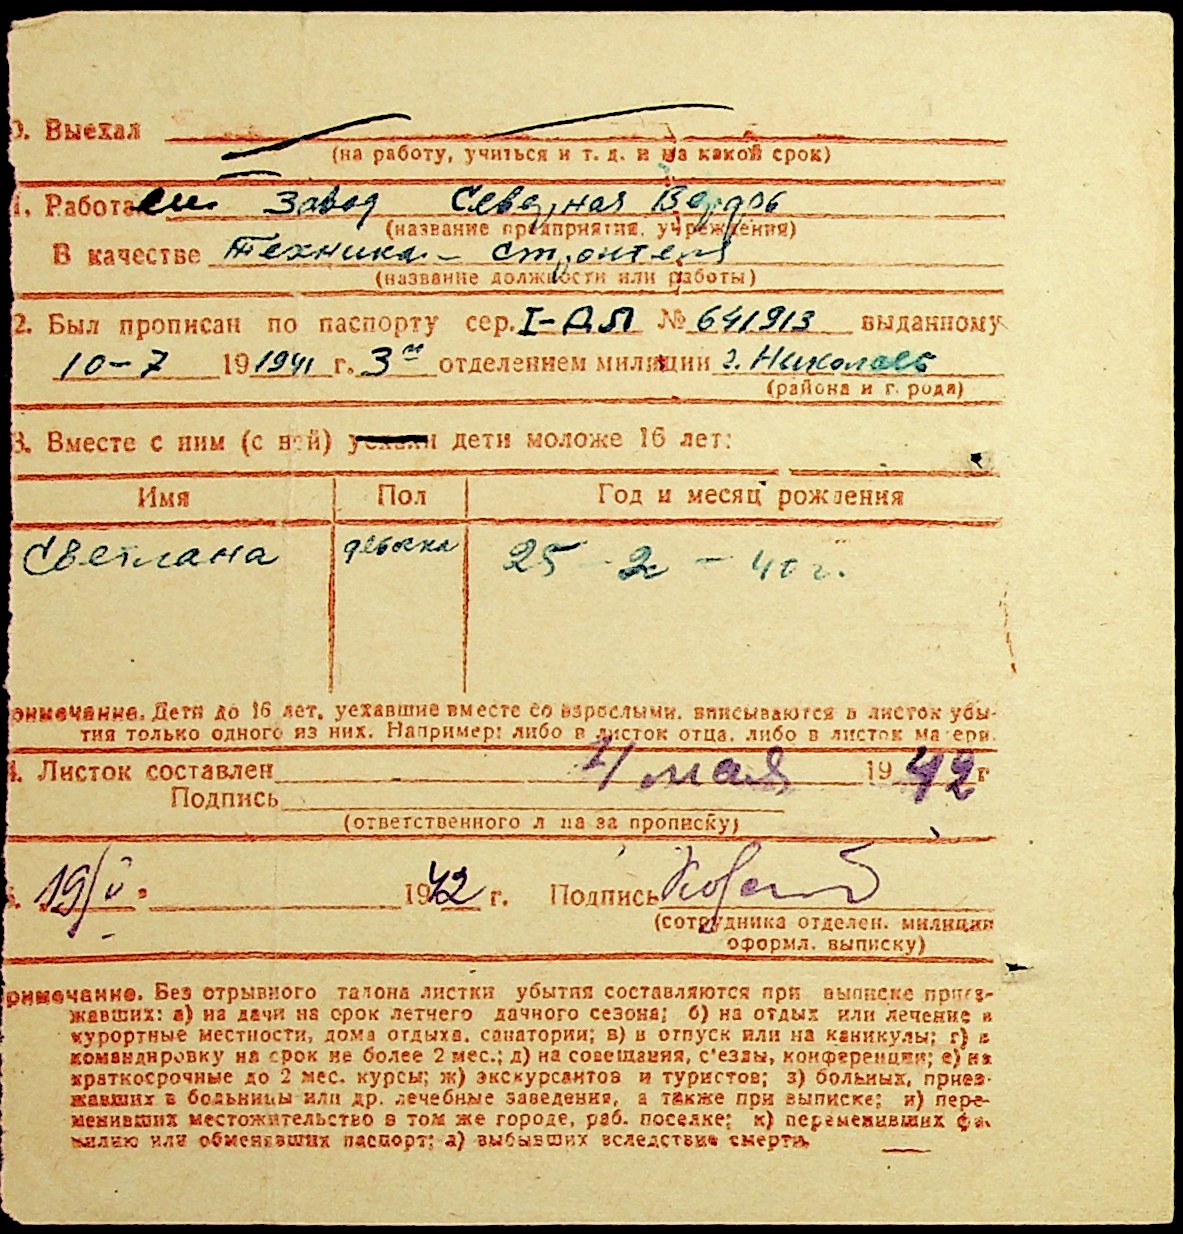 0. Выехал
(на работу, учиться и т. д. и на какой срок)
1. Работал Завод Северная Верфь
(название предприятия, учреждения)
В качестве Техника-строителя
(название должности или работы)
2. Был прописан по паспорту сер. I-ДЛ № 641913 выданному
10-7 19 1941 г. 3м отделением милиции г. Николаев
(района и города)
3. Вместе с ним (с ней) уехали дети моложе 16 лет:
Имя Пол Год и месяц рождения
Светлана девочка 25-2-40 г.
римечание. Дети до 16 лет, уехавшие вместе со взрослыми, вписываются в листок убы-
тия только одного из них. Например: либо в листок отца, либо в листок матери.
4. Листок составлен 21 мая 1942 г
Подпись
(ответственного лица за прописку)
19/V 1942 г. Подпись
(сотрудника отделен. милиции
оформл. выписку)
римечание. Без отрывного талона листки убытия составляются при выписке приез-
жавших: а) на дачи на срок летнего дачного сезона; б) на отдых или лечение в
курортные местности, дома отдыха, санатории; в) в отпуск или на каникулы; г) в
командировку на срок не более 2 мес.; д) на совещания, с'езды, конференции; е) на
краткосрочные до 2 мес. курсы; ж) экскурсантов и туристов; з) больных, приез-
жавших в больницы или др. лечебные заведения, а также при выписке; и) пере-
менивших местожительство в том же городе, раб. поселке; к) переменивших фа-
милию или обменявших паспорт; л) выбывших вследствие смерти.